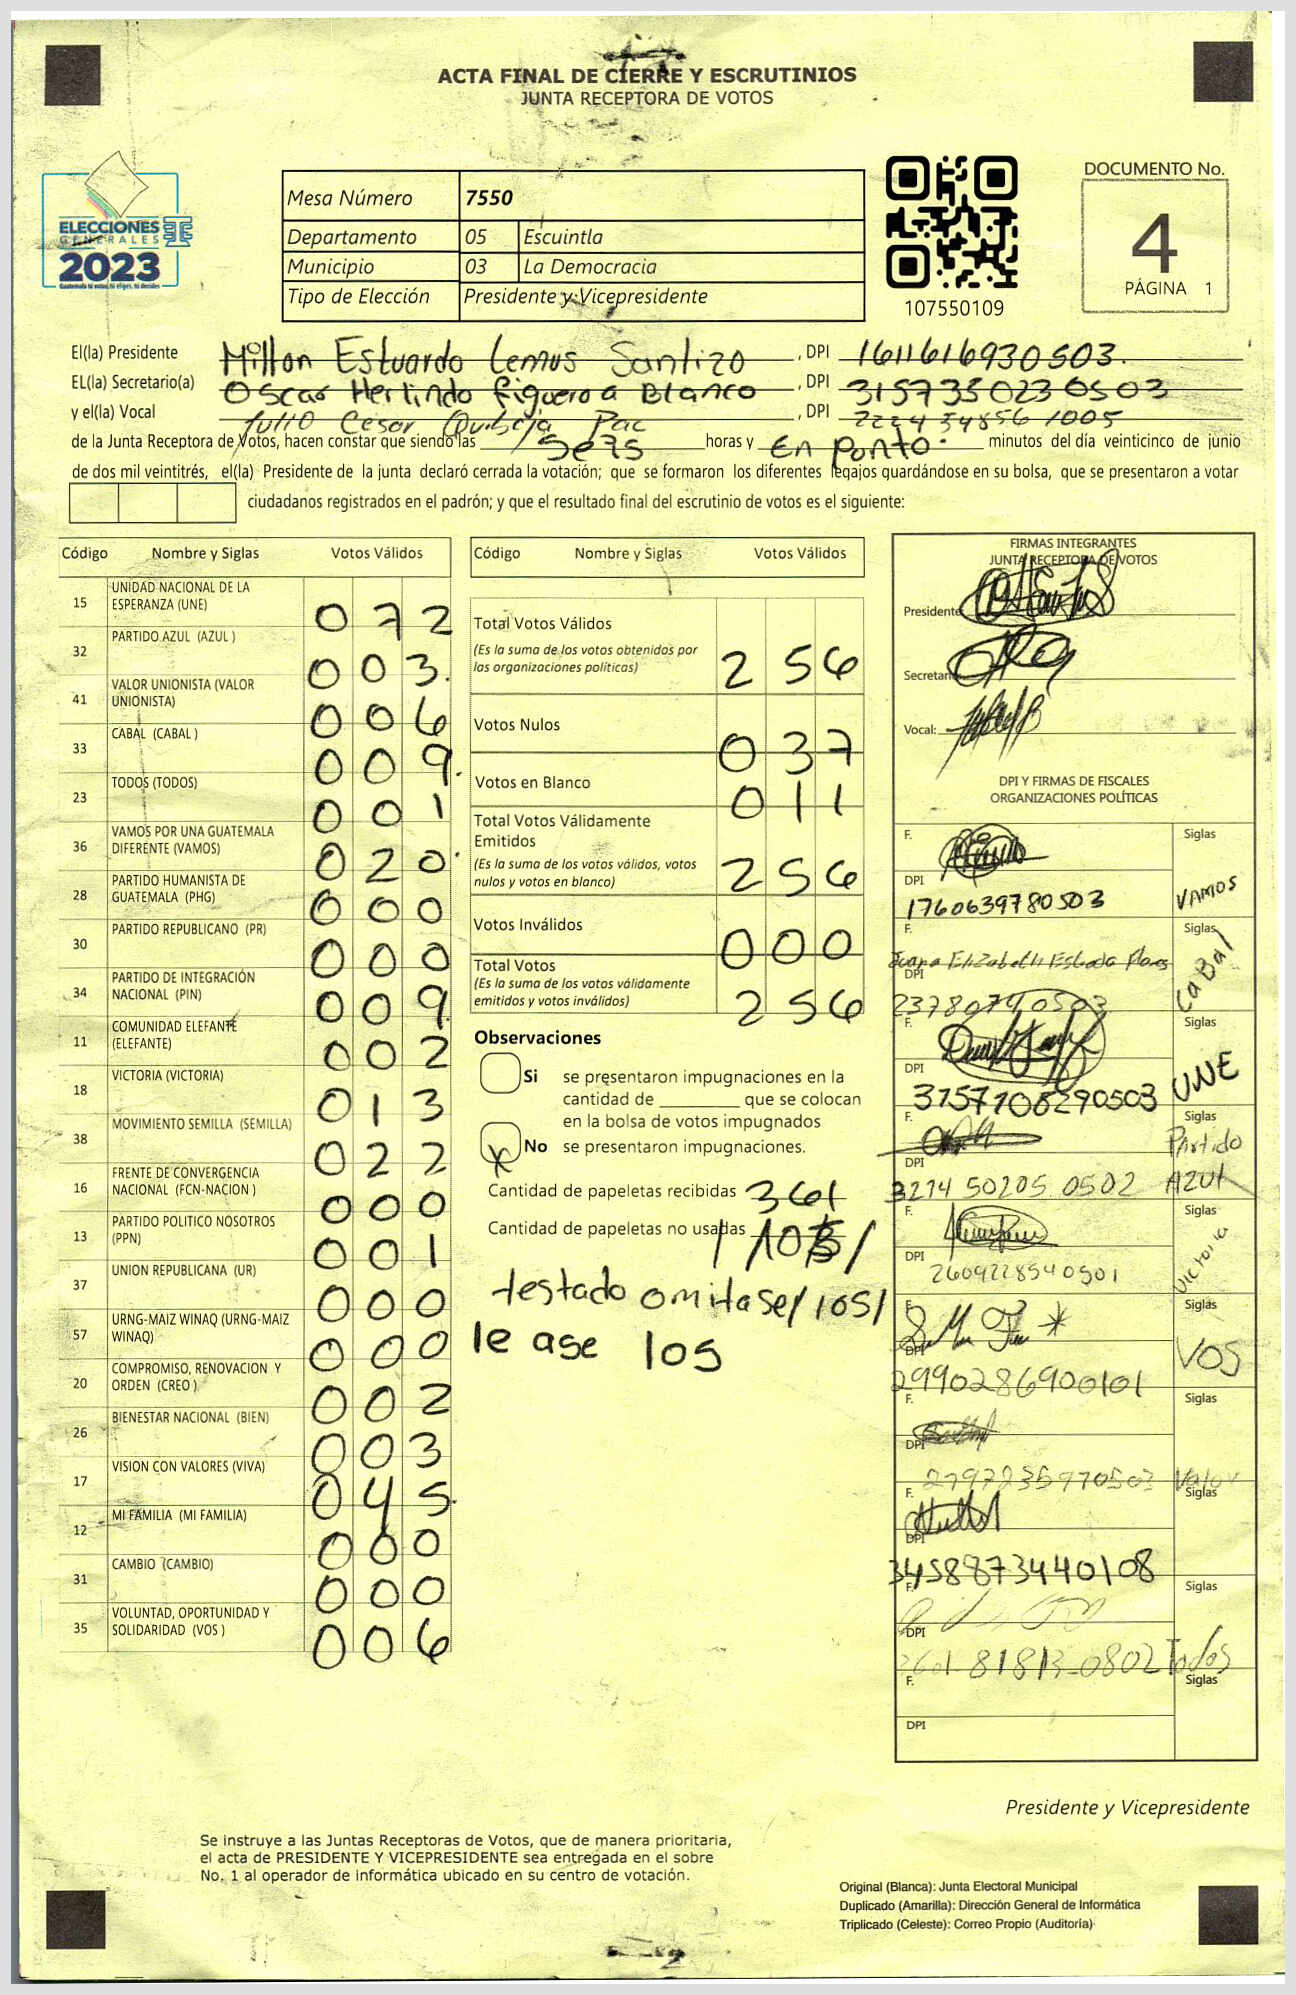 ACTA FINAL DE CIERRE Y ESCRUTINIOS
JUNTA RECEPTORA DE VOTOS
ELECCIONES
GENERALES
2023
Guatemala tú votas, tú eliges, tú decides
Mesa Número 7550
Departamento 05 Escuintla
Municipio 03 La Democracia
Tipo de Elección Presidente y Vicepresidente
107550109
DOCUMENTO No.
4
PÁGINA 1
El(la) Presidente Milton Estuardo Lemus Santizo, DPI 1611616930503.
EL(la) Secretario(a) Oscar Herlindo Figueroa Blanco, DPI 3157350230503
y el(la) Vocal Julio Cesar Pac, DPI 2224348561005
de la Junta Receptora de Votos, hacen constar que siendo las se7s horas y En punto. minutos del día veinticinco de junio
de dos mil veintitrés, el(la) Presidente de la junta declaró cerrada la votación; que se formaron los diferentes legajos guardándose en su bolsa, que se presentaron a votar
ciudadanos registrados en el padrón; y que el resultado final del escrutinio de votos es el siguiente:
Código Nombre y Siglas Votos Válidos
15 UNIDAD NACIONAL DE LA ESPERANZA (UNE) 072
32 PARTIDO AZUL (AZUL ) 003.
41 VALOR UNIONISTA (VALOR UNIONISTA) 006
33 CABAL (CABAL ) 009.
23 TODOS (TODOS) 001
36 VAMOS POR UNA GUATEMALA DIFERENTE (VAMOS) 020.
28 PARTIDO HUMANISTA DE GUATEMALA (PHG) 000
30 PARTIDO REPUBLICANO (PR) 000
34 PARTIDO DE INTEGRACIÓN NACIONAL (PIN) 009
11 COMUNIDAD ELEFANTE (ELEFANTE) 002
18 VICTORIA (VICTORIA) 013
38 MOVIMIENTO SEMILLA (SEMILLA) 022
16 FRENTE DE CONVERGENCIA NACIONAL (FCN-NACION ) 000
13 PARTIDO POLITICO NOSOTROS (PPN) 001
37 UNION REPUBLICANA (UR) 000
57 URNG-MAIZ WINAQ (URNG-MAIZ WINAQ) 000
20 COMPROMISO, RENOVACION Y ORDEN (CREO ) 002
26 BIENESTAR NACIONAL (BIEN) 003
17 VISION CON VALORES (VIVA) 045.
12 MI FAMILIA (MI FAMILIA) 000
31 CAMBIO (CAMBIO) 000
35 VOLUNTAD, OPORTUNIDAD Y SOLIDARIDAD (VOS ) 006
Código Nombre y Siglas Votos Válidos
Total Votos Válidos
(Es la suma de los votos obtenidos por
las organizaciones políticas) 256
Votos Nulos 037
Votos en Blanco 011
Total Votos Válidamente
Emitidos
(Es la suma de los votos válidos, votos
nulos y votos en blanco) 256
Votos Inválidos 000
Total Votos
(Es la suma de los votos válidamente
emitidos y votos inválidos) 256
Observaciones
Si se presentaron impugnaciones en la
cantidad de ________ que se colocan
en la bolsa de votos impugnados
X No se presentaron impugnaciones.
Cantidad de papeletas recibidas 361
Cantidad de papeletas no usadas
testado omitase/105/
le ase 105
FIRMAS INTEGRANTES
JUNTA RECEPTORA DE VOTOS
Presidente:
Secretario:
Vocal:
DPI Y FIRMAS DE FISCALES
ORGANIZACIONES POLÍTICAS
F. Siglas
DPI 1760639780503 VAMOS
F. Siglas
Juana Elizabeth Estrada Flores
DPI CaBal
F. Siglas
DPI 3157108290503 UNE
F. Siglas
DPI 3274 50205 0502 Partido AZUL
F. Siglas
DPI 2609228540501 Victoria
F. Siglas
DPI 2990286900101 VOS
F. Siglas
DPI 2797235970503 Valor
F. Siglas
DPI 3458873440108
F. Siglas
DPI Todos
F. Siglas
DPI
Presidente y Vicepresidente
Se instruye a las Juntas Receptoras de Votos, que de manera prioritaria,
el acta de PRESIDENTE Y VICEPRESIDENTE sea entregada en el sobre
No. 1 al operador de informática ubicado en su centro de votación.
Original (Blanca): Junta Electoral Municipal
Duplicado (Amarilla): Dirección General de Informática
Triplicado (Celeste): Correo Propio (Auditoría)